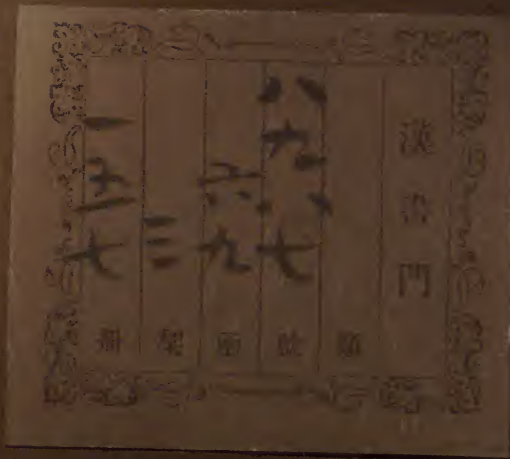 漢書門
類
八九 七號
六九函
三架
一 七冊